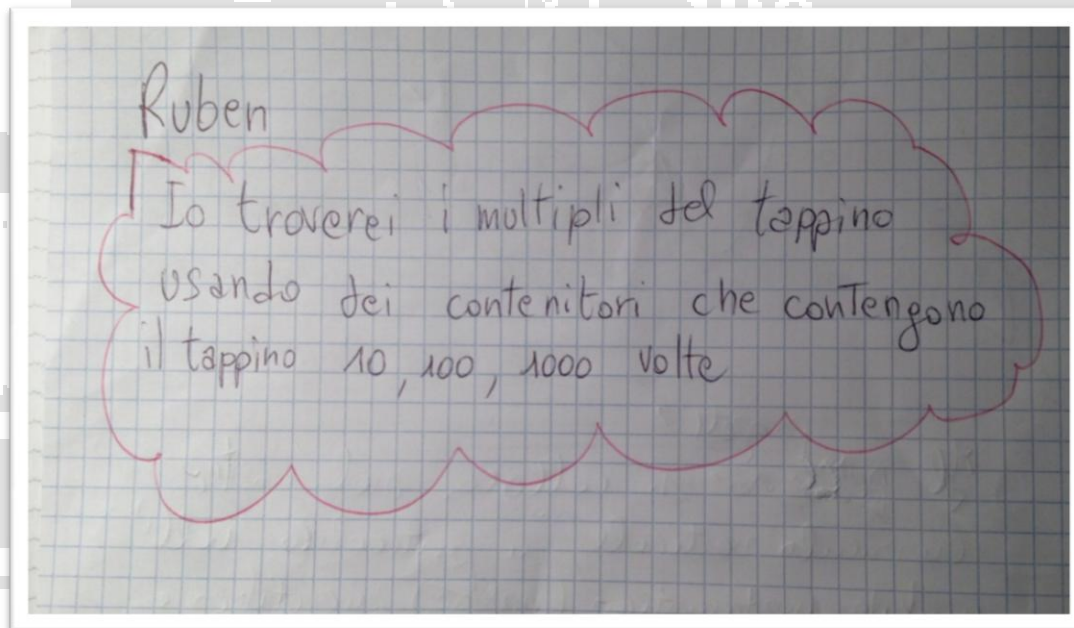 Ruben
Io troverei i multipli del tappino
usando dei contenitori che contengono
il tappino 10, 100, 1000 volte